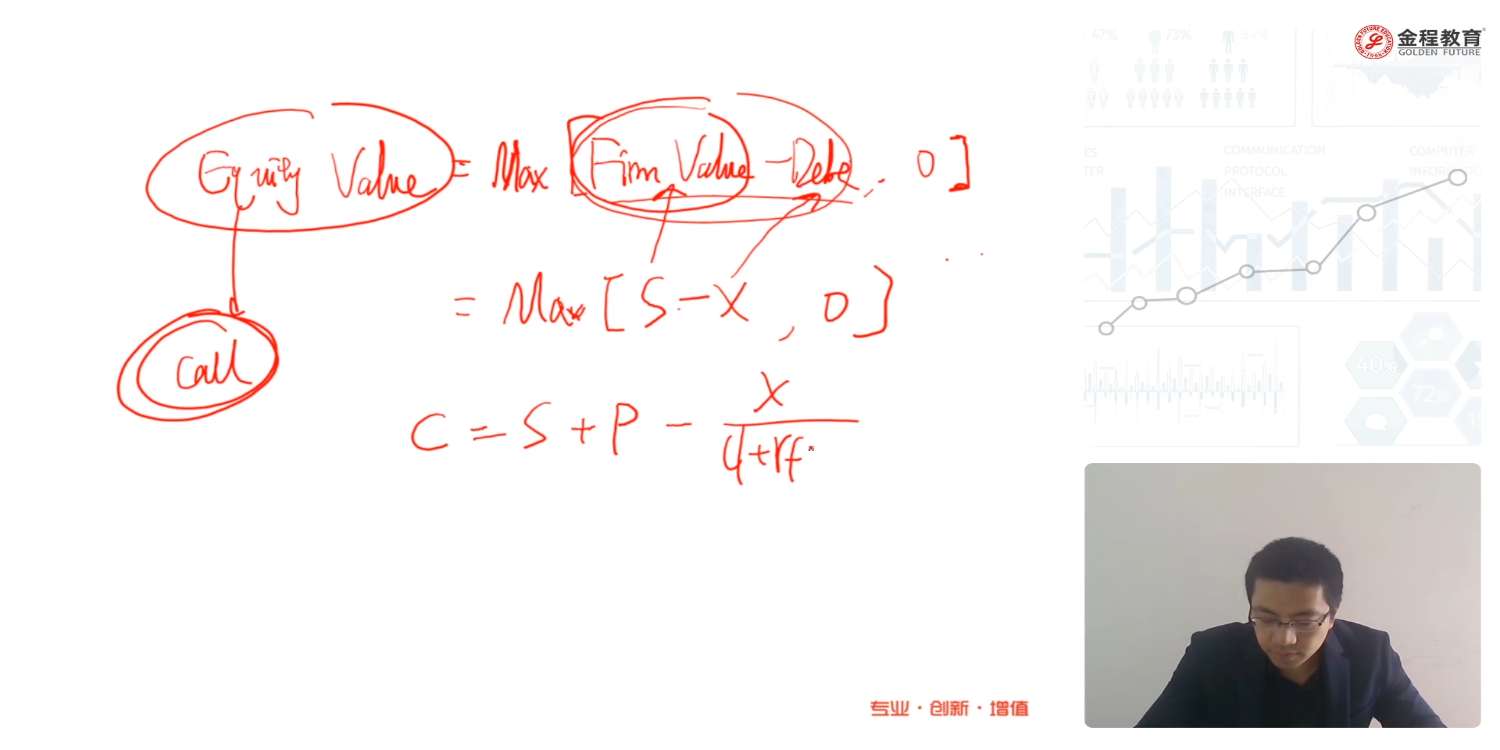 金程教育
GOLDEN FUTURE
47%
73%
COMMUNICATION
PROTOCOL
INTERFACE
COMPUTER
Equity Value = Max [Firm Value - Debt, 0]
= Max [S - X, 0]
Call
C = S + P - X
(1+rf
40%
72%
专业·创新·增值